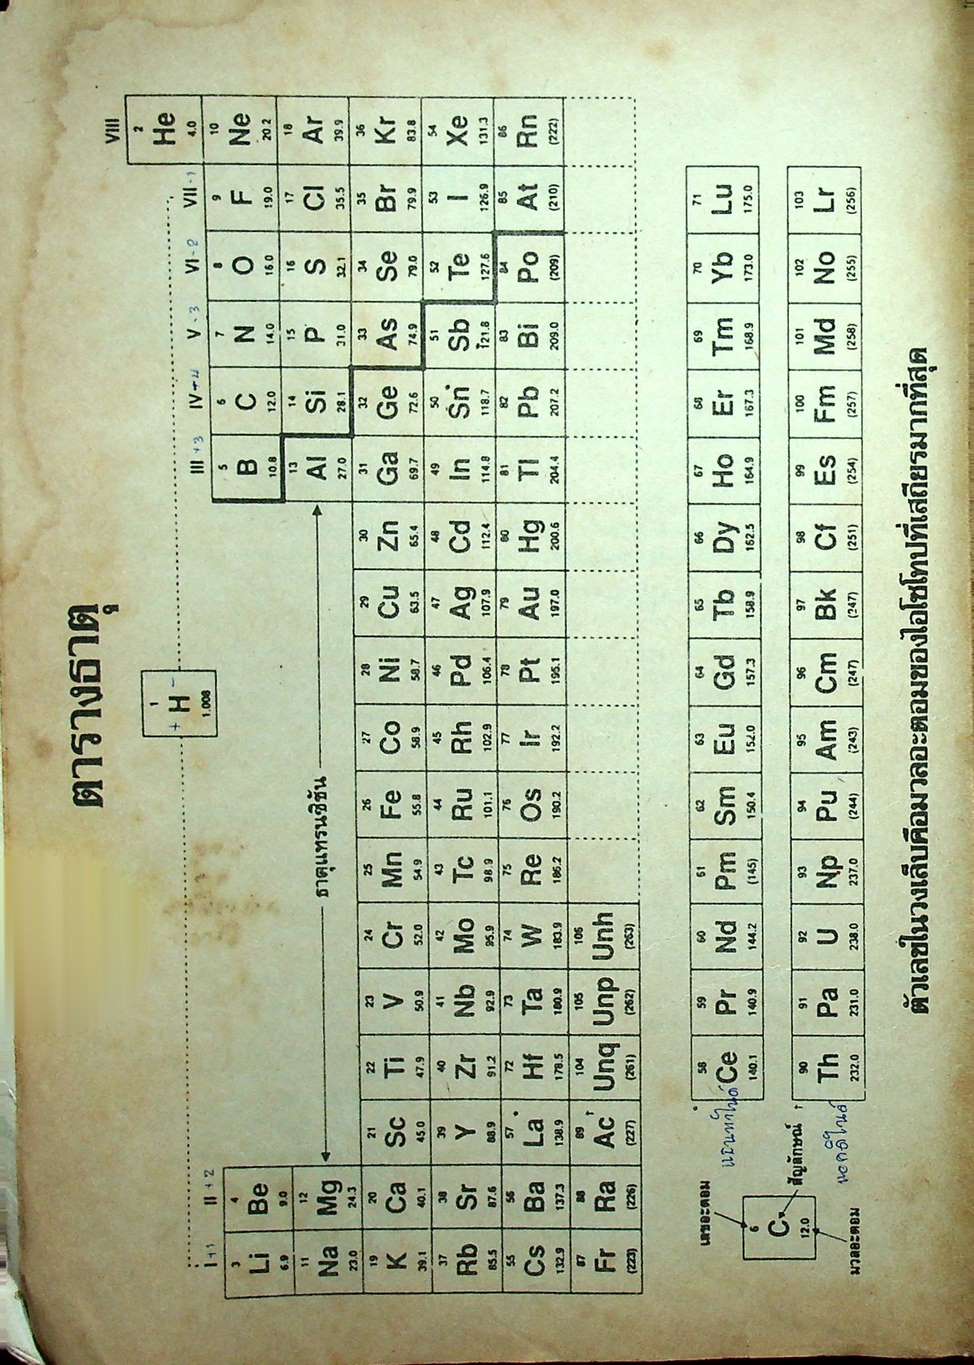 ตารางธาตุ
VIII
1
+ H -
1.008
2
He
4.0
I +1 II +2 III +3 IV +4 V -3 VI -2 VII -1
3 4 5 6 7 8 9 10
Li Be B C N O F Ne
6.9 9.0 10.8 12.0 14.0 16.0 19.0 20.2
11 12 13 14 15 16 17 18
Na Mg ธาตุแทรนซิชัน Al Si P S Cl Ar
23.0 24.3 27.0 28.1 31.0 32.1 35.5 39.9
19 20 21 22 23 24 25 26 27 28 29 30 31 32 33 34 35 36
K Ca Sc Ti V Cr Mn Fe Co Ni Cu Zn Ga Ge As Se Br Kr
39.1 40.1 45.0 47.9 50.9 52.0 54.9 55.8 58.9 58.7 63.5 65.4 69.7 72.6 74.9 79.0 79.9 83.8
37 38 39 40 41 42 43 44 45 46 47 48 49 50 51 52 53 54
Rb Sr Y Zr Nb Mo Tc Ru Rh Pd Ag Cd In Sn Sb Te I Xe
85.5 87.6 88.9 91.2 92.9 95.9 98.9 101.1 102.9 106.4 107.9 112.4 114.8 118.7 121.8 127.6 126.9 131.3
55 56 57 72 73 74 75 76 77 78 79 80 81 82 83 84 85 86
Cs Ba La* Hf Ta W Re Os Ir Pt Au Hg Tl Pb Bi Po At Rn
132.9 137.3 138.9 178.5 180.9 183.9 186.2 190.2 192.2 195.1 197.0 200.6 204.4 207.2 209.0 (209) (210) (222)
87 88 89 104 105 106
Fr Ra Ac† Unq Unp Unh
(223) (226) (227) (261) (262) (263)
* 58 59 60 61 62 63 64 65 66 67 68 69 70 71
แลนทาไนด์ Ce Pr Nd Pm Sm Eu Gd Tb Dy Ho Er Tm Yb Lu
140.1 140.9 144.2 (145) 150.4 152.0 157.3 158.9 162.5 164.9 167.3 168.9 173.0 175.0
† 90 91 92 93 94 95 96 97 98 99 100 101 102 103
Th Pa U Np Pu Am Cm Bk Cf Es Fm Md No Lr
232.0 231.0 238.0 237.0 (244) (243) (247) (247) (251) (254) (257) (258) (255) (256)
เลขอะตอม
6
C สัญลักษณ์
12.0
มวลอะตอม
ตัวเลขในวงเล็บคือมวลอะตอมของไอโซโทปที่เสถียรมากที่สุด